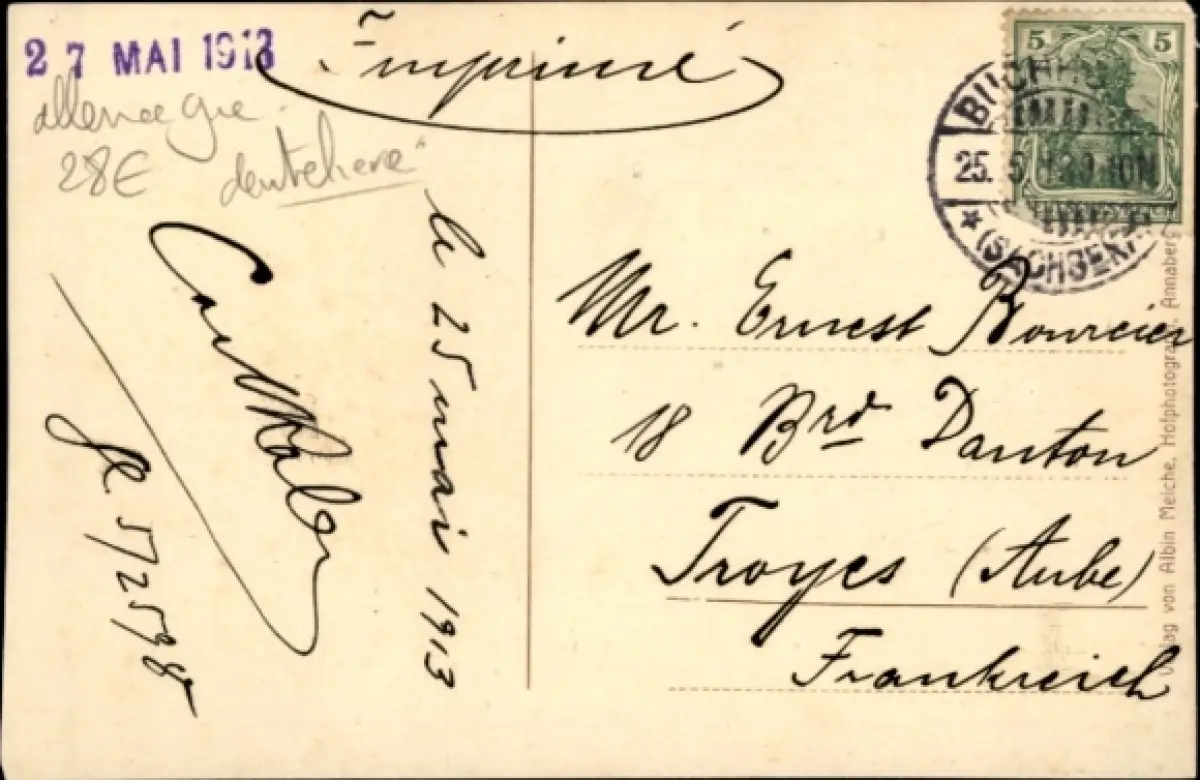 27 MAI 1913
Imprimé
allemagne
28€
le 25 mai 1913
5 5
BUCHHO
25. 5. 13 9-10 N
* (SACHSEN)
Mr. Ernest Bourcier
18 Brd Danton
Troyes (Aube)
Frankreich
Verlag von Albin Meiche, Hofphotograph, Annaberg